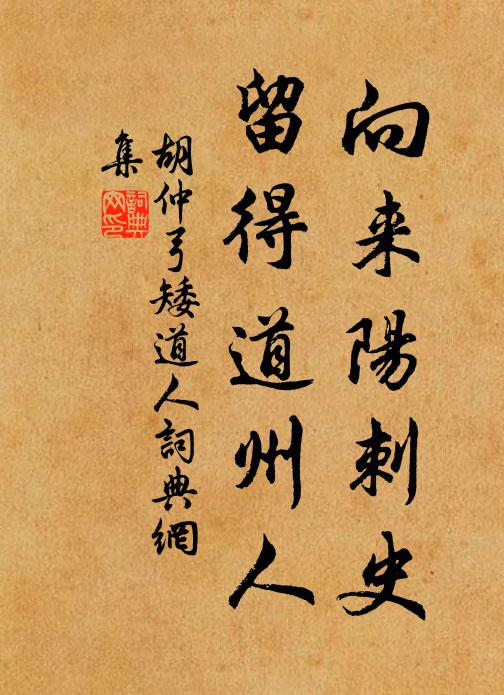 向来陽刺史
留得道州人
胡仲弓矮道人詞典網
集
詞典網印